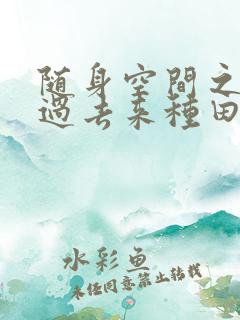 随身空間之
過去来種田
水彩鱼
未经同意禁止转载